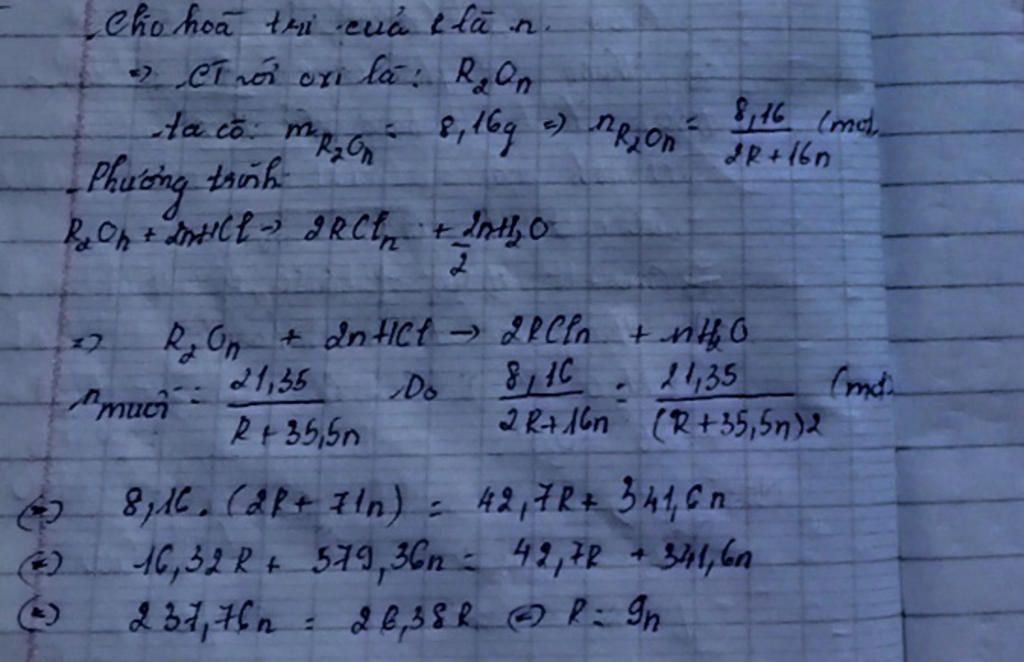 - Cho hoá trị của R là n.
=> CT với oxi là: R₂Oₙ
- ta có: m_R₂Oₙ = 8,16g => n_R₂Oₙ = 8,16/(2R+16n) (mol
- Phương trình
R₂Oₙ + 2nHCl -> 2RClₙ + 2n/2 H₂O
=> R₂Oₙ + 2nHCl -> 2RClₙ + nH₂O
n muối = 21,35/(R+35,5n) Do 8,16/(2R+16n) = 21,35/((R+35,5n)2) (mol
(=) 8,16. (2R + 71n) = 42,7R + 341,6n
(=) 16,32R + 579,36n = 42,7R + 341,6n
(=) 237,76n = 26,38R (=) R = 9n